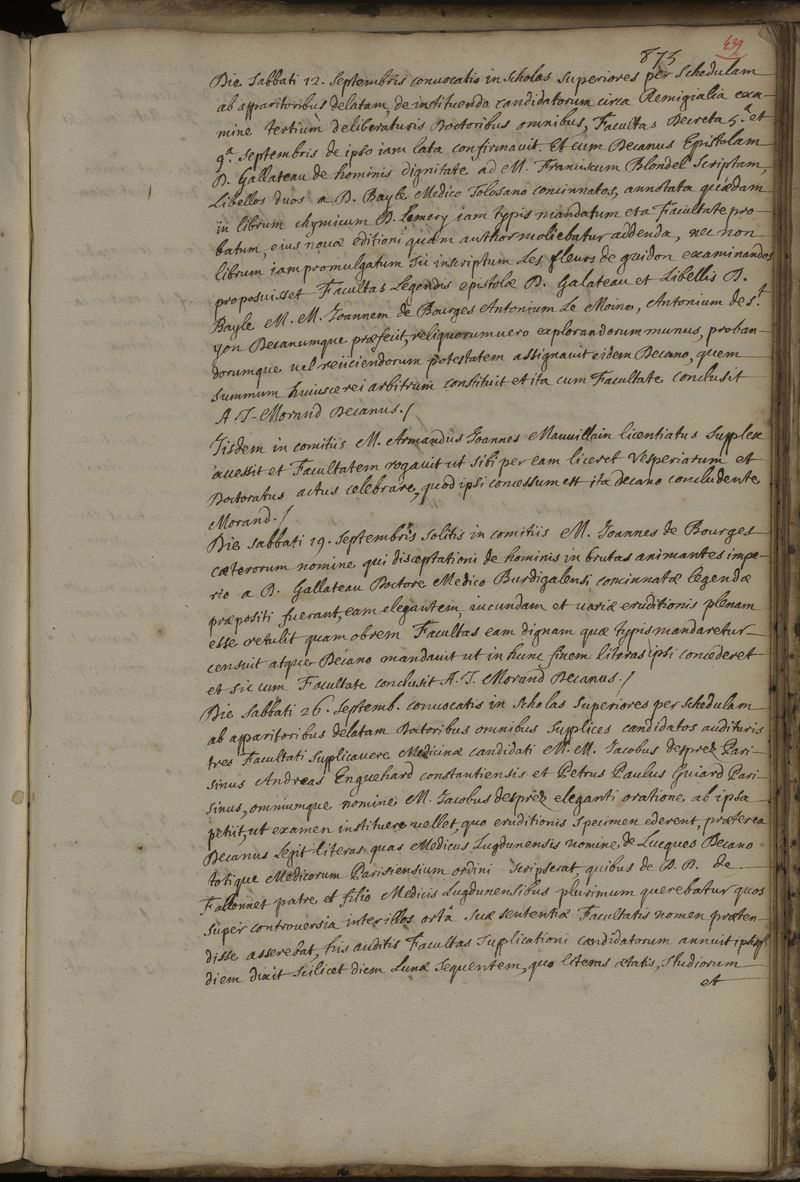 873
439
Die Sabbati 12. Septembris convocatis in Scholas Superiores per Schedulam
ab apparitoribus delatam, de instituendo candidatorum circa Remigialia exa-
mine tertium deliberaturis Doctoribus omnibus, Facultas Decreta 5.ª et
9.ª Septembris de ipso iam lata confirmavit. Et cum Decanus Epistolam
D. Gallateau de hominis dignitate ad M. Franciscum Blondel Scriptam,
Libellos duos a D. Bayle Medico Tolosano concinnatos, annotata quædam
in librum chymicum D. Lemery iam typis mandatum et a Facultate pro-
batum, eius novæ editioni quam author moliebatur addenda, nec non
librum iam promulgatum sic inscriptum Les fleurs de guidon examinandos
proposuisset Facultas Legendis epistolæ D. Galateau et Libellis D.
Bayle M. M. Joannem de Bourges Antonium Le Moine, Antonium de S.t
yon Decanumque præfecit, reliquorum vero explorandorum munus, proban-
dorumque vel reiiciendorum potestatem assignavit eidem Decano, quem
summum huiusce rei arbitrum constituit et ita cum Facultate conclusit
A. J. Morand Decanus./
Iisdem in comitiis M. Armandus Joannes Mauvillain licentiatus Supplex
accessit et Facultatem rogavit ut sibi per eam liceret Vesperiarum et
Doctoratus actus celebrare, quod ipsi concessum est ita decano concludente
Morand./
Die Sabbati 19. Septembris Solitis in comitiis M. Joannes de Bourges
cæterorum nomine qui disceptationi de hominis in brutas animantes impe-
rio a D. Gallateau Doctore Medico Burdigalensi concinnatæ legendæ
præpositi fuerant, eam elegantem, iucundam et variæ eruditionis plenam
esse retulit quam obrem Facultas eam dignam quæ typis mandaretur
censuit atque Decano mandavit ut in hunc finem literas ipsi concederet
et sic cum Facultate conclusit A. J. Morand Decanus./
Die Sabbati 26. Septemb. convocatis in Scholas Superiores per Schedulam
ab apparitoribus delatam Doctoribus omnibus Supplices candidatos audituris
tres Facultati Supplicavere Medicinæ candidati M. M. Jacobus desprez Pari-
sinus Andreas Enguehard constantiensis et Petrus Paulus Guiard Pari-
sinus, omniumque nomine M. Jacobus desprez eleganti oratione ab ipsa
petiit, ut examen instituere vellet, quo eruditionis Specimen ederent, præterea
Decanus Legit literas quas Medicus Lugdunensis nomine de Lucques Decano
totique Medicorum Parisiensium ordini scripserat quibus de D. D. de
Fallonnet patre et filio Medicis Lugdunensibus plurimum querebatur quos
super controversia inter illos ortâ suæ sententiæ Facultatis nomen præten-
disse asserebat, his auditis Facultas Supplicationi candidatorum annuit ipsisq.
diem dixit scilicet diem Lunæ Sequentem, quo literas ætatis, Studiorum
et